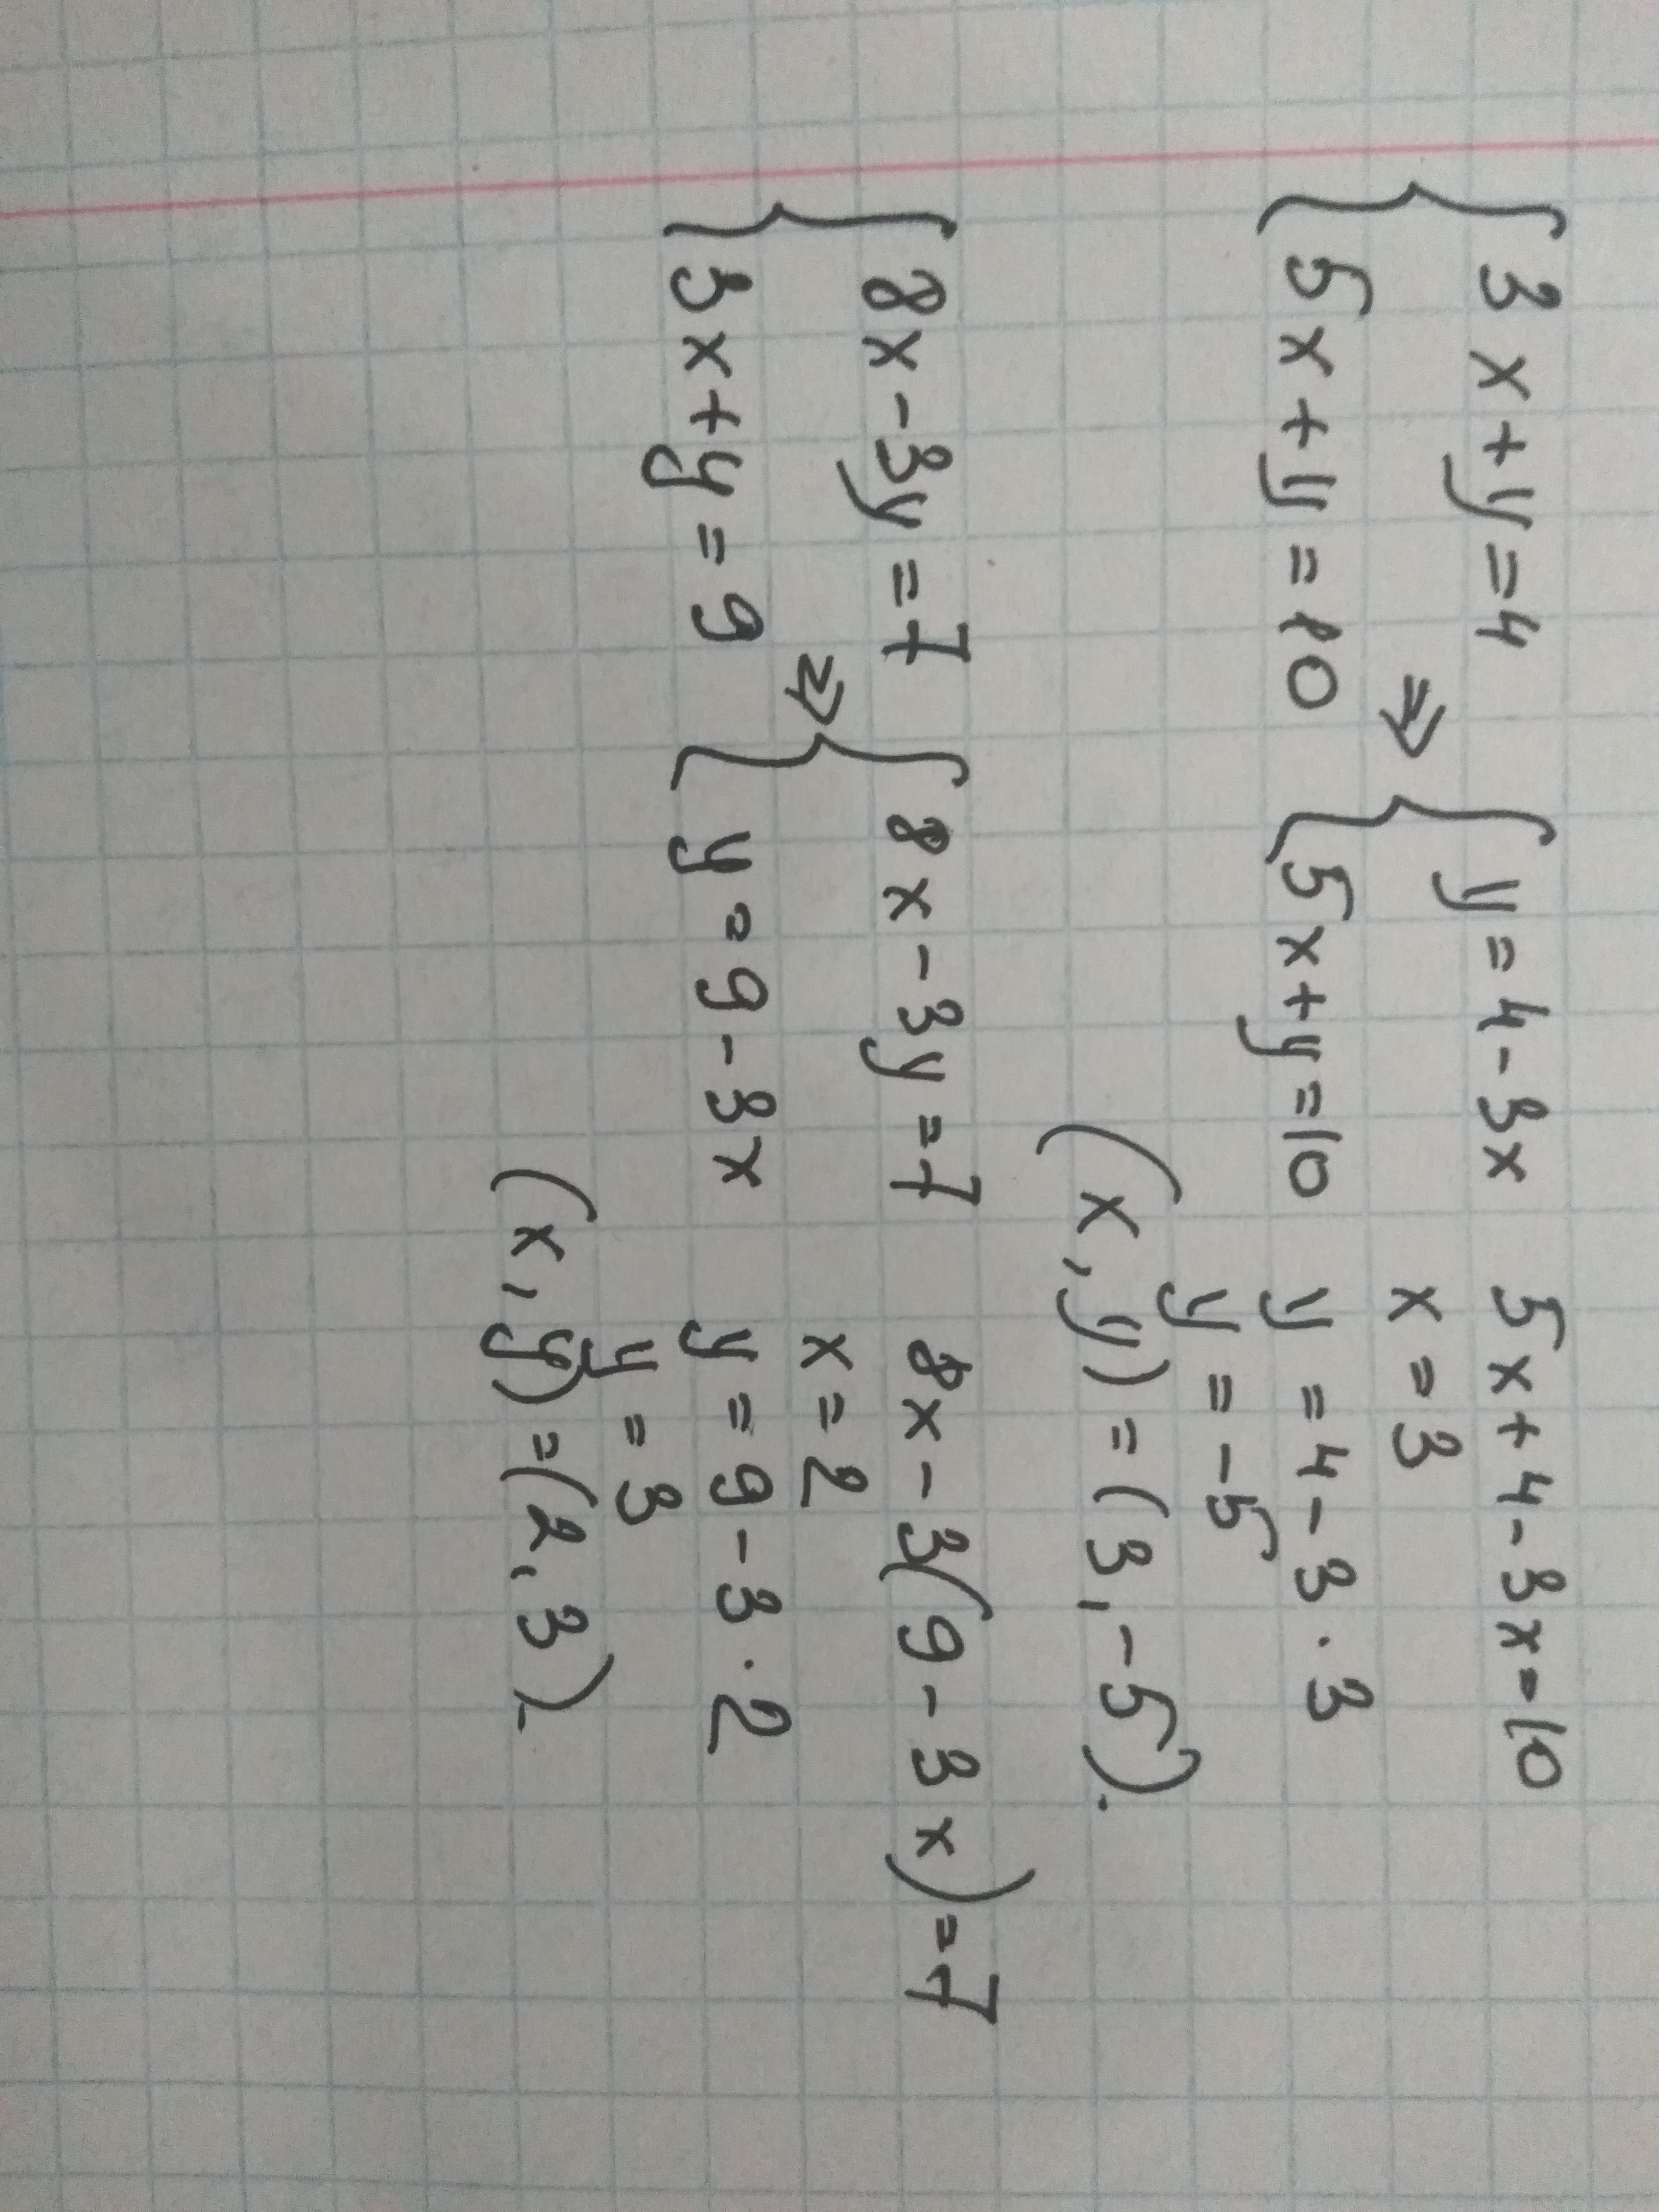 { 3x+y=4
{ 5x+y=10 ⇒ { y=4-3x
{ 5x+y=10
5x+4-3x=10
x=3
y=4-3·3
y=-5
(x,y)=(3,-5).
{ 8x-3y=7
{ 3x+y=9 ⇒ { 8x-3y=7
{ y=9-3x
8x-3(9-3x)=7
x=2
y=9-3·2
y=3
(x,y)=(2,3).